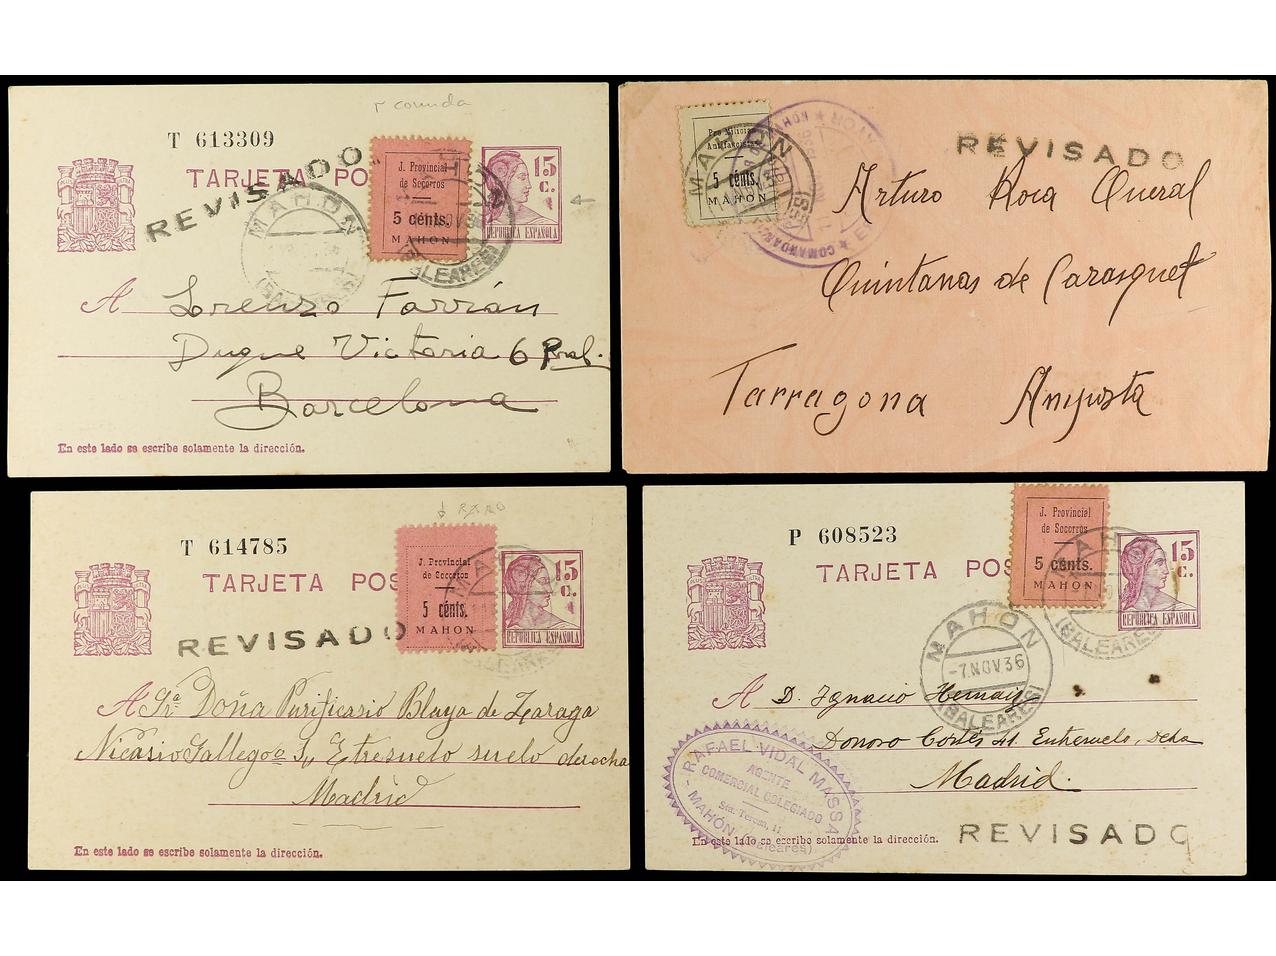 r comida
T 613309
TARJETA PO
REVISADO
J. Provincial
de Socorros
5 cents.
MAHON
15
C.
REPUBLICA ESPAÑOLA
MAHON
NOV 36
(BALEARES)
MAHON
A Lorenzo Farrán
Duque Victoria 6 Pral.
Barcelona
En este lado se escribe solamente la dirección.
Pro Milicias
Antifascistas
5 cénts.
MAHON
MAHON
REVISADO
Arturo Roca Queral
Quintanas de Carasquet
Tarragona Amposta
RARO
T 614785
TARJETA POS
REVISADO
J. Provincial
de Socorros
5 cénts.
MAHON
15
C.
REPUBLICA ESPAÑOLA
A Sra Doña Purificasio Blaya de Zaraga
Nicasio Gallego 3, Etresuelo suelo derecha
Madrid
En este lado se escribe solamente la dirección.
P 608523
TARJETA POS
J. Provincial
de Socorros
5 cents.
MAHON
15
C.
REPUBLICA ESPAÑOLA
(BALEARES)
MAHON
-7.NOV36
(BALEARES)
A D. Ignacio Hernaiz
Donoso Cortés 41. Entresuelo, Dcha
Madrid.
RAFAEL VIDAL MASSA
AGENTE
COMERCIAL COLEGIADO
Sta. Teresa, 11
MAHÓN (Baleares)
REVISADO
En este lado se escribe solamente la dirección.